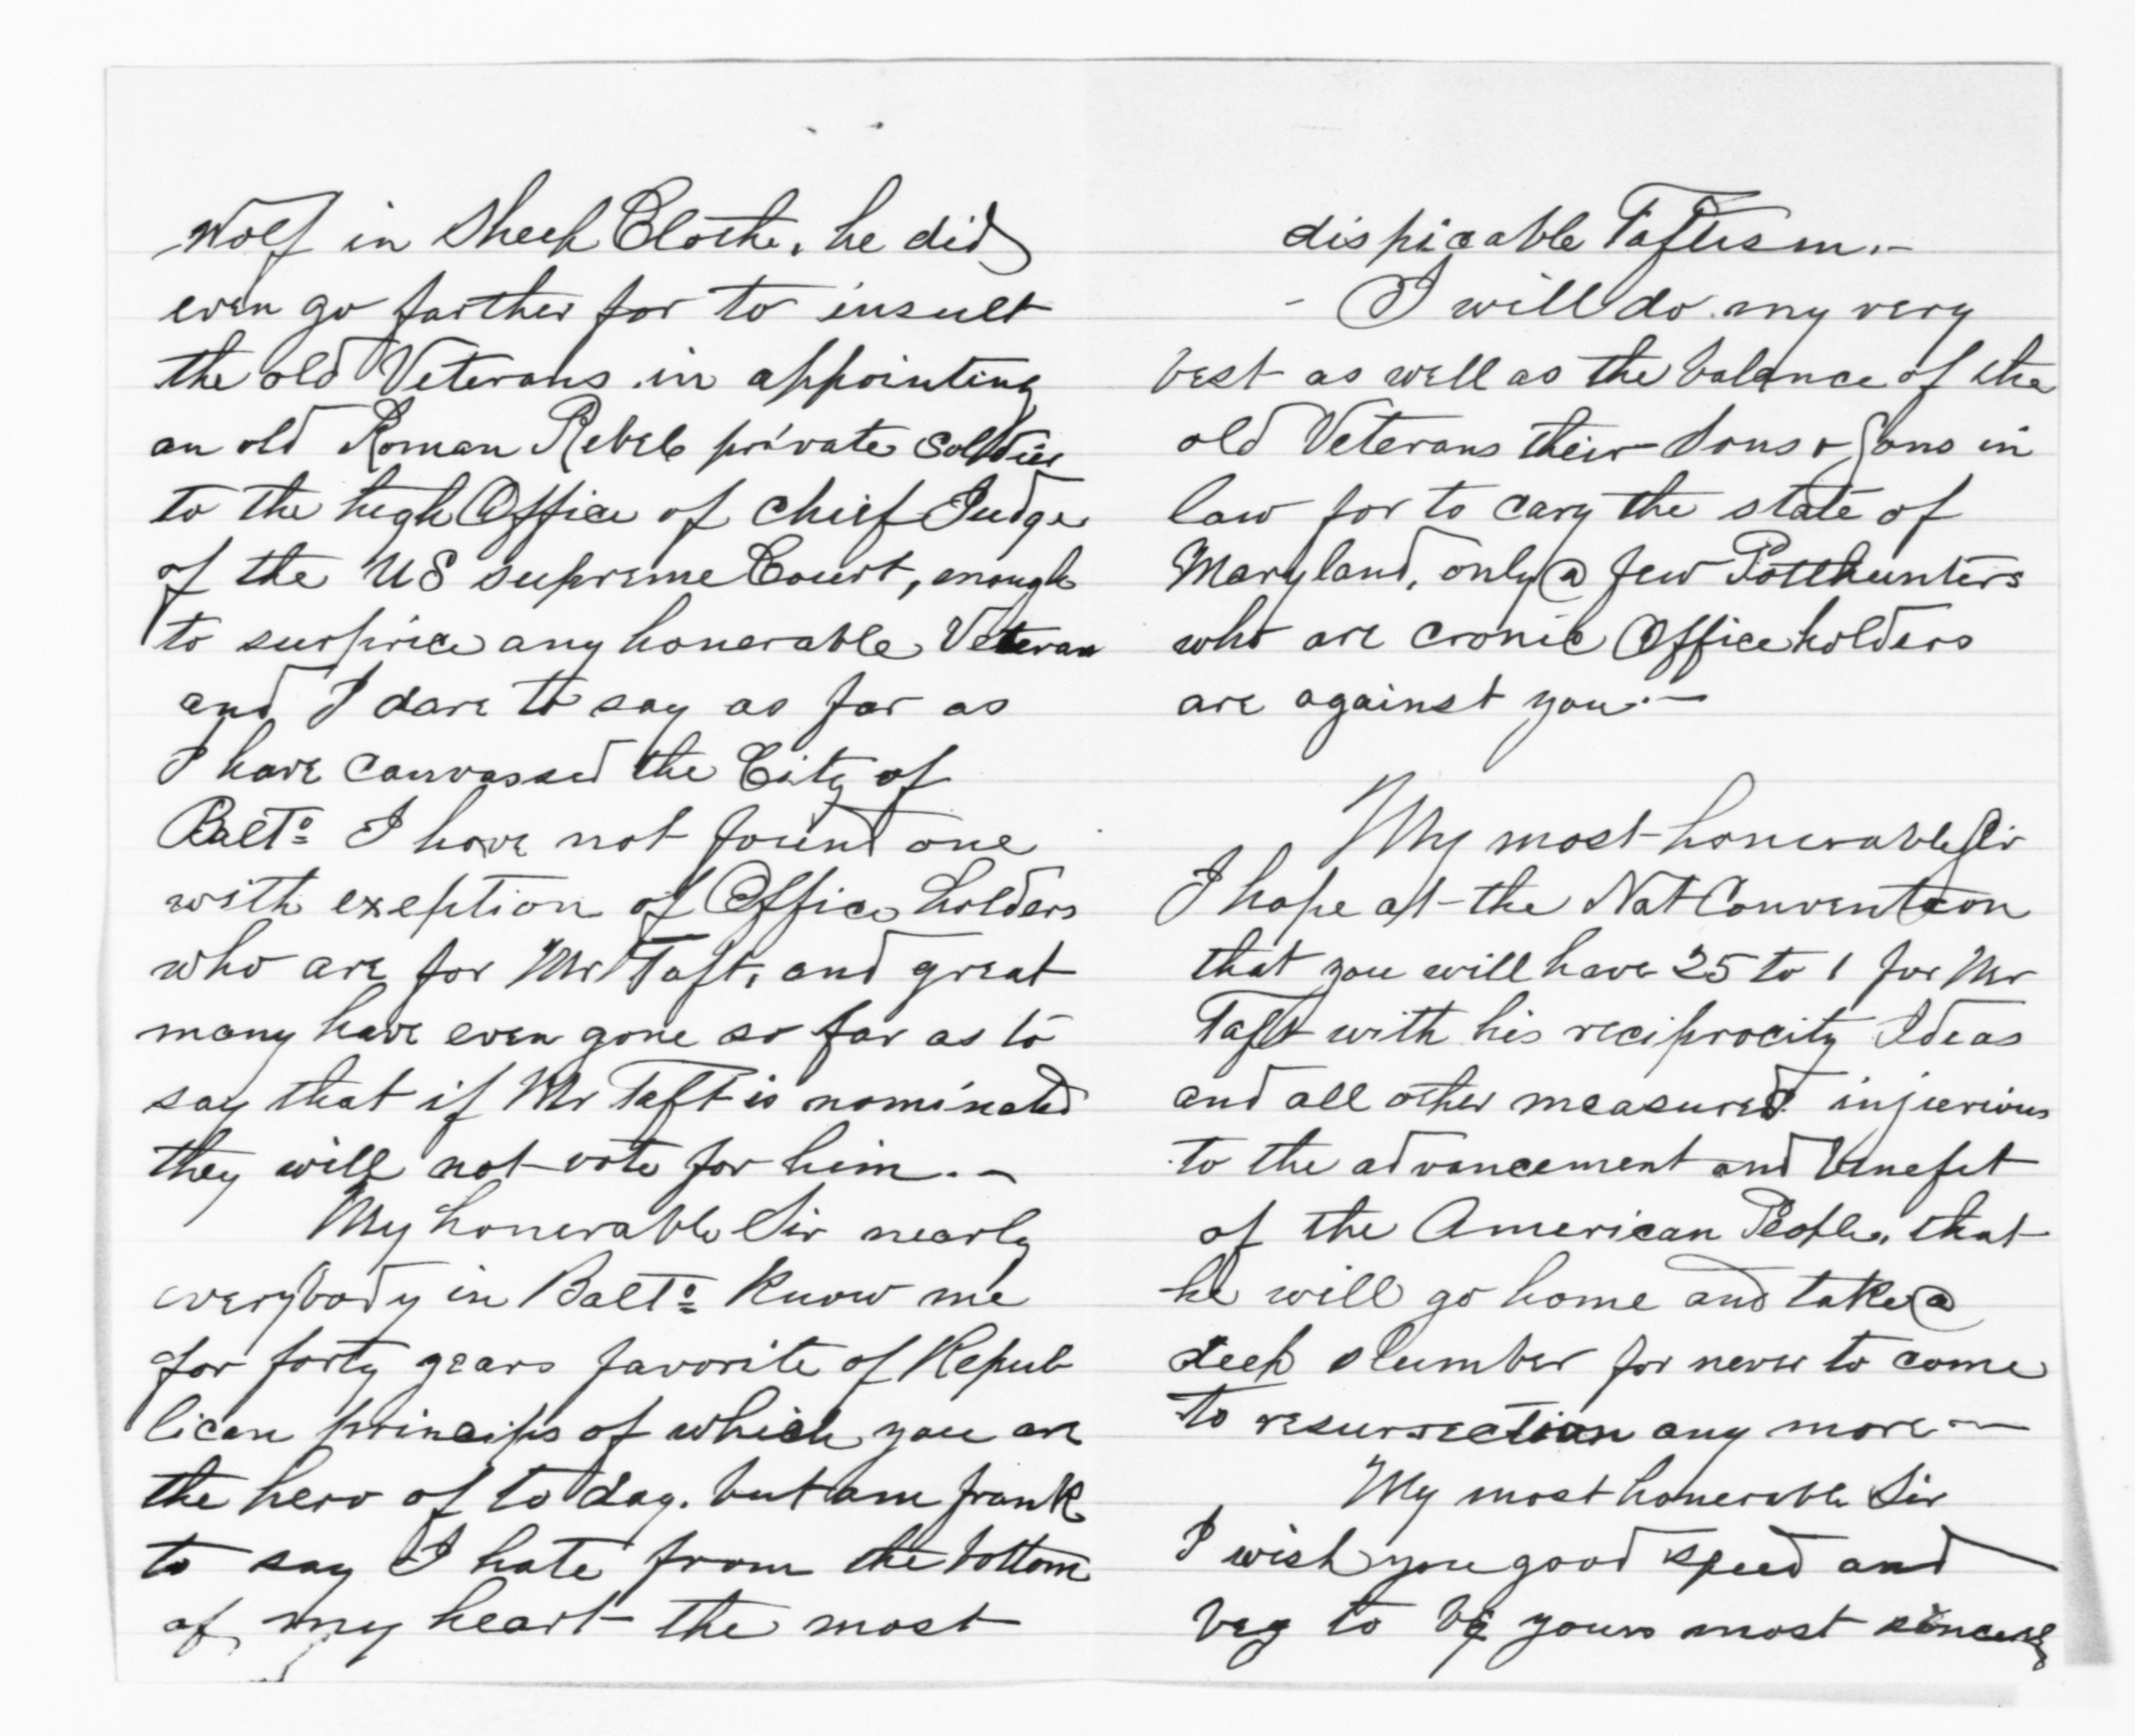 Wolf in Sheep Clothe, he did
even go farther for to insult
the old Veterans in appointing
an old Roman Rebel private Soldier
to the high Office of chief Judge
of the US supreme Court, enough
to surprice any honerable Veteran
and I dare to say as far as
I have canvassed the City of
Balto I have not found one
with exeption of Office holders
who are for Mr Taft, and great
many have even gone so far as to
say that if Mr Taft is nominated
they will not vote for him.-
My honerable Sir nearly
everybody in Balto Know me
for forty years favorite of Repub
lican princips of which you are
the hero of to day. but am frank
to say I hate from the bottom
of my heart the most
dispicable Taftism.-
- I will do my very
best as well as the balance of the
old Veterans their Sons & Sons in
law for to cary the state of
Maryland, only a few Potthunters
who are cronic Office holders
are against you.-
My most honerable Sir
I hope at the Nat Convention
that you will have 25 to 1 for Mr
Taft with his reciprocity Ideas
and all other measures injurious
to the advancement and benefit
of the American People, that
he will go home and take a
deep slumber for never to come
to resurrection any more -
My most honerable Sir
I wish you good speed and
beg to be yours most sincerely